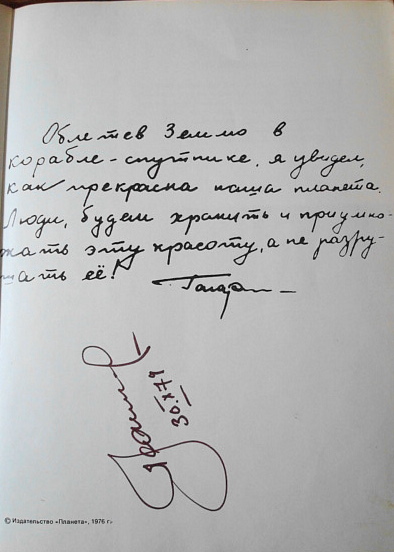 Облетев Землю в
корабле-спутнике, я увидел,
как прекрасна наша планета.
Люди, будем хранить и приумно-
жать эту красоту, а не разру-
шать её!
Гагарин
30.X.79
© Издательство «Планета», 1976 г.